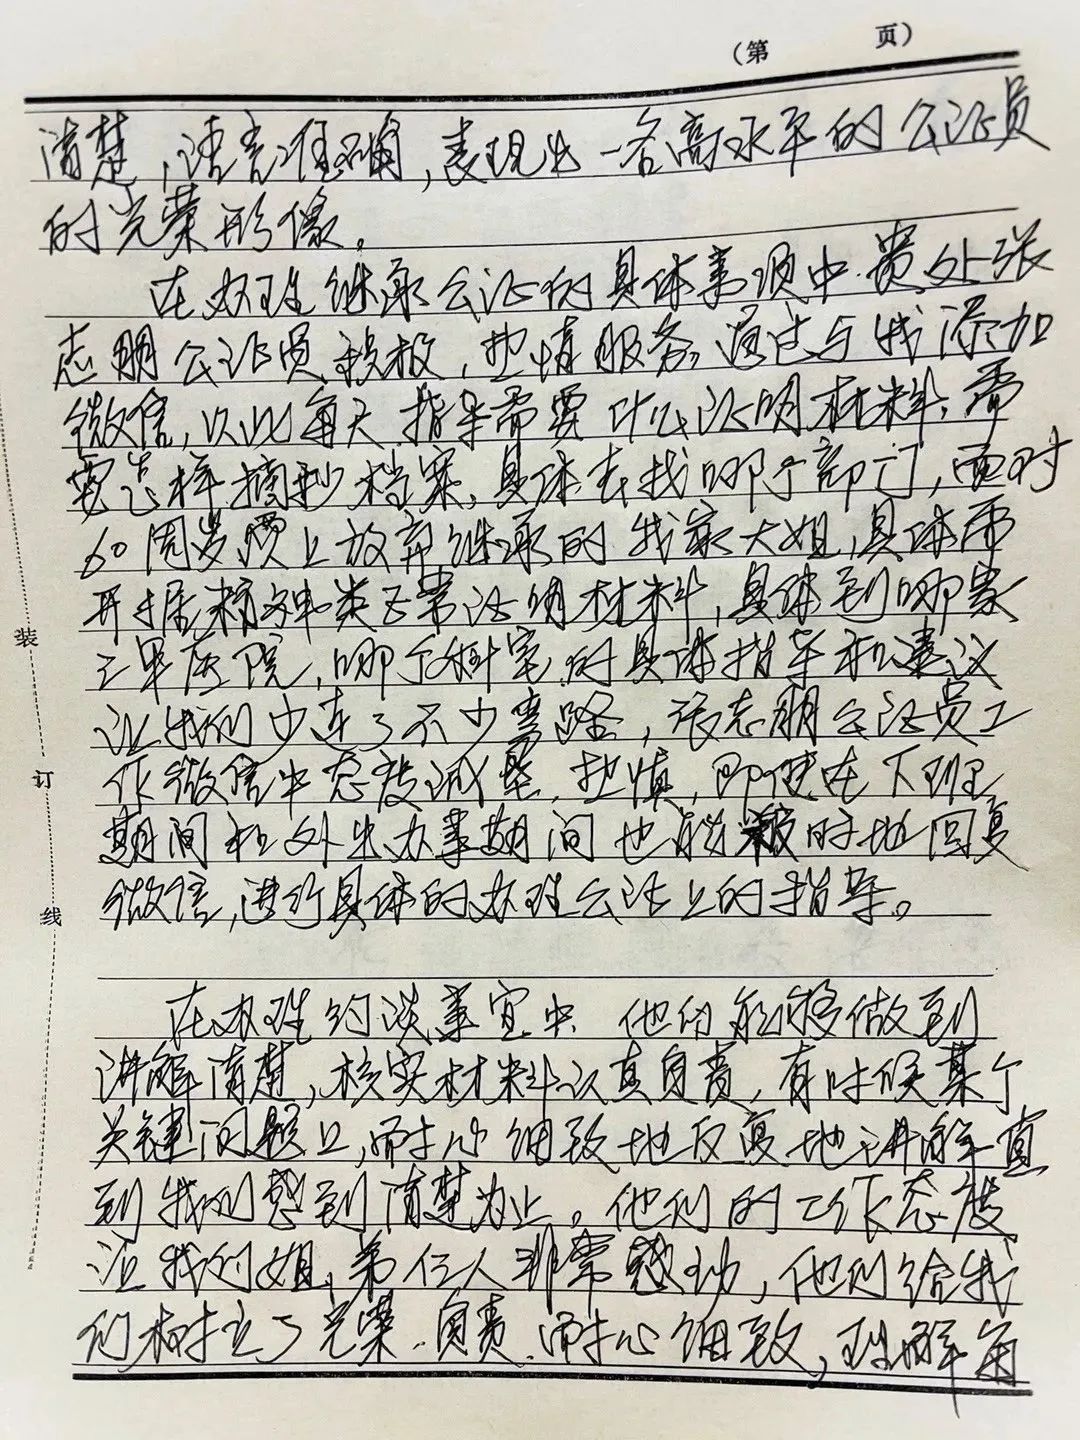 (第 页)
清楚,语言准确,表现出一名高水平的公证员
的光荣形像。
在办理继承公证的具体事项中,贵处张
志明公证员积极,热情服务,通过与我添加
微信,以此每天指导需要什么证明材料,需
要怎样摘抄档案,具体去找哪个部门,面对
60周岁须上放弃继承的我家大姐,具体需
开据精神类正常证明材料,具体到哪家
三甲医院,哪个科室的具体指导和建议
让我们少走了不少弯路,张志明公证员工
作微信中态度诚恳,热情,即使在下班
期间和外出办事期间也能及时地回复
微信,进行具体的办理公证上的指导。
在办理约谈事宜中他们能够做到
讲解清楚,核实材料认真负责,有时候某个
关键问题上,耐心细致地反复地讲解直
到我们感到清楚为止。他们的工作态度
让我们姐弟仨人非常感动,他们给我
们树立了光荣.负责.耐心细致,理解角
装
订
线